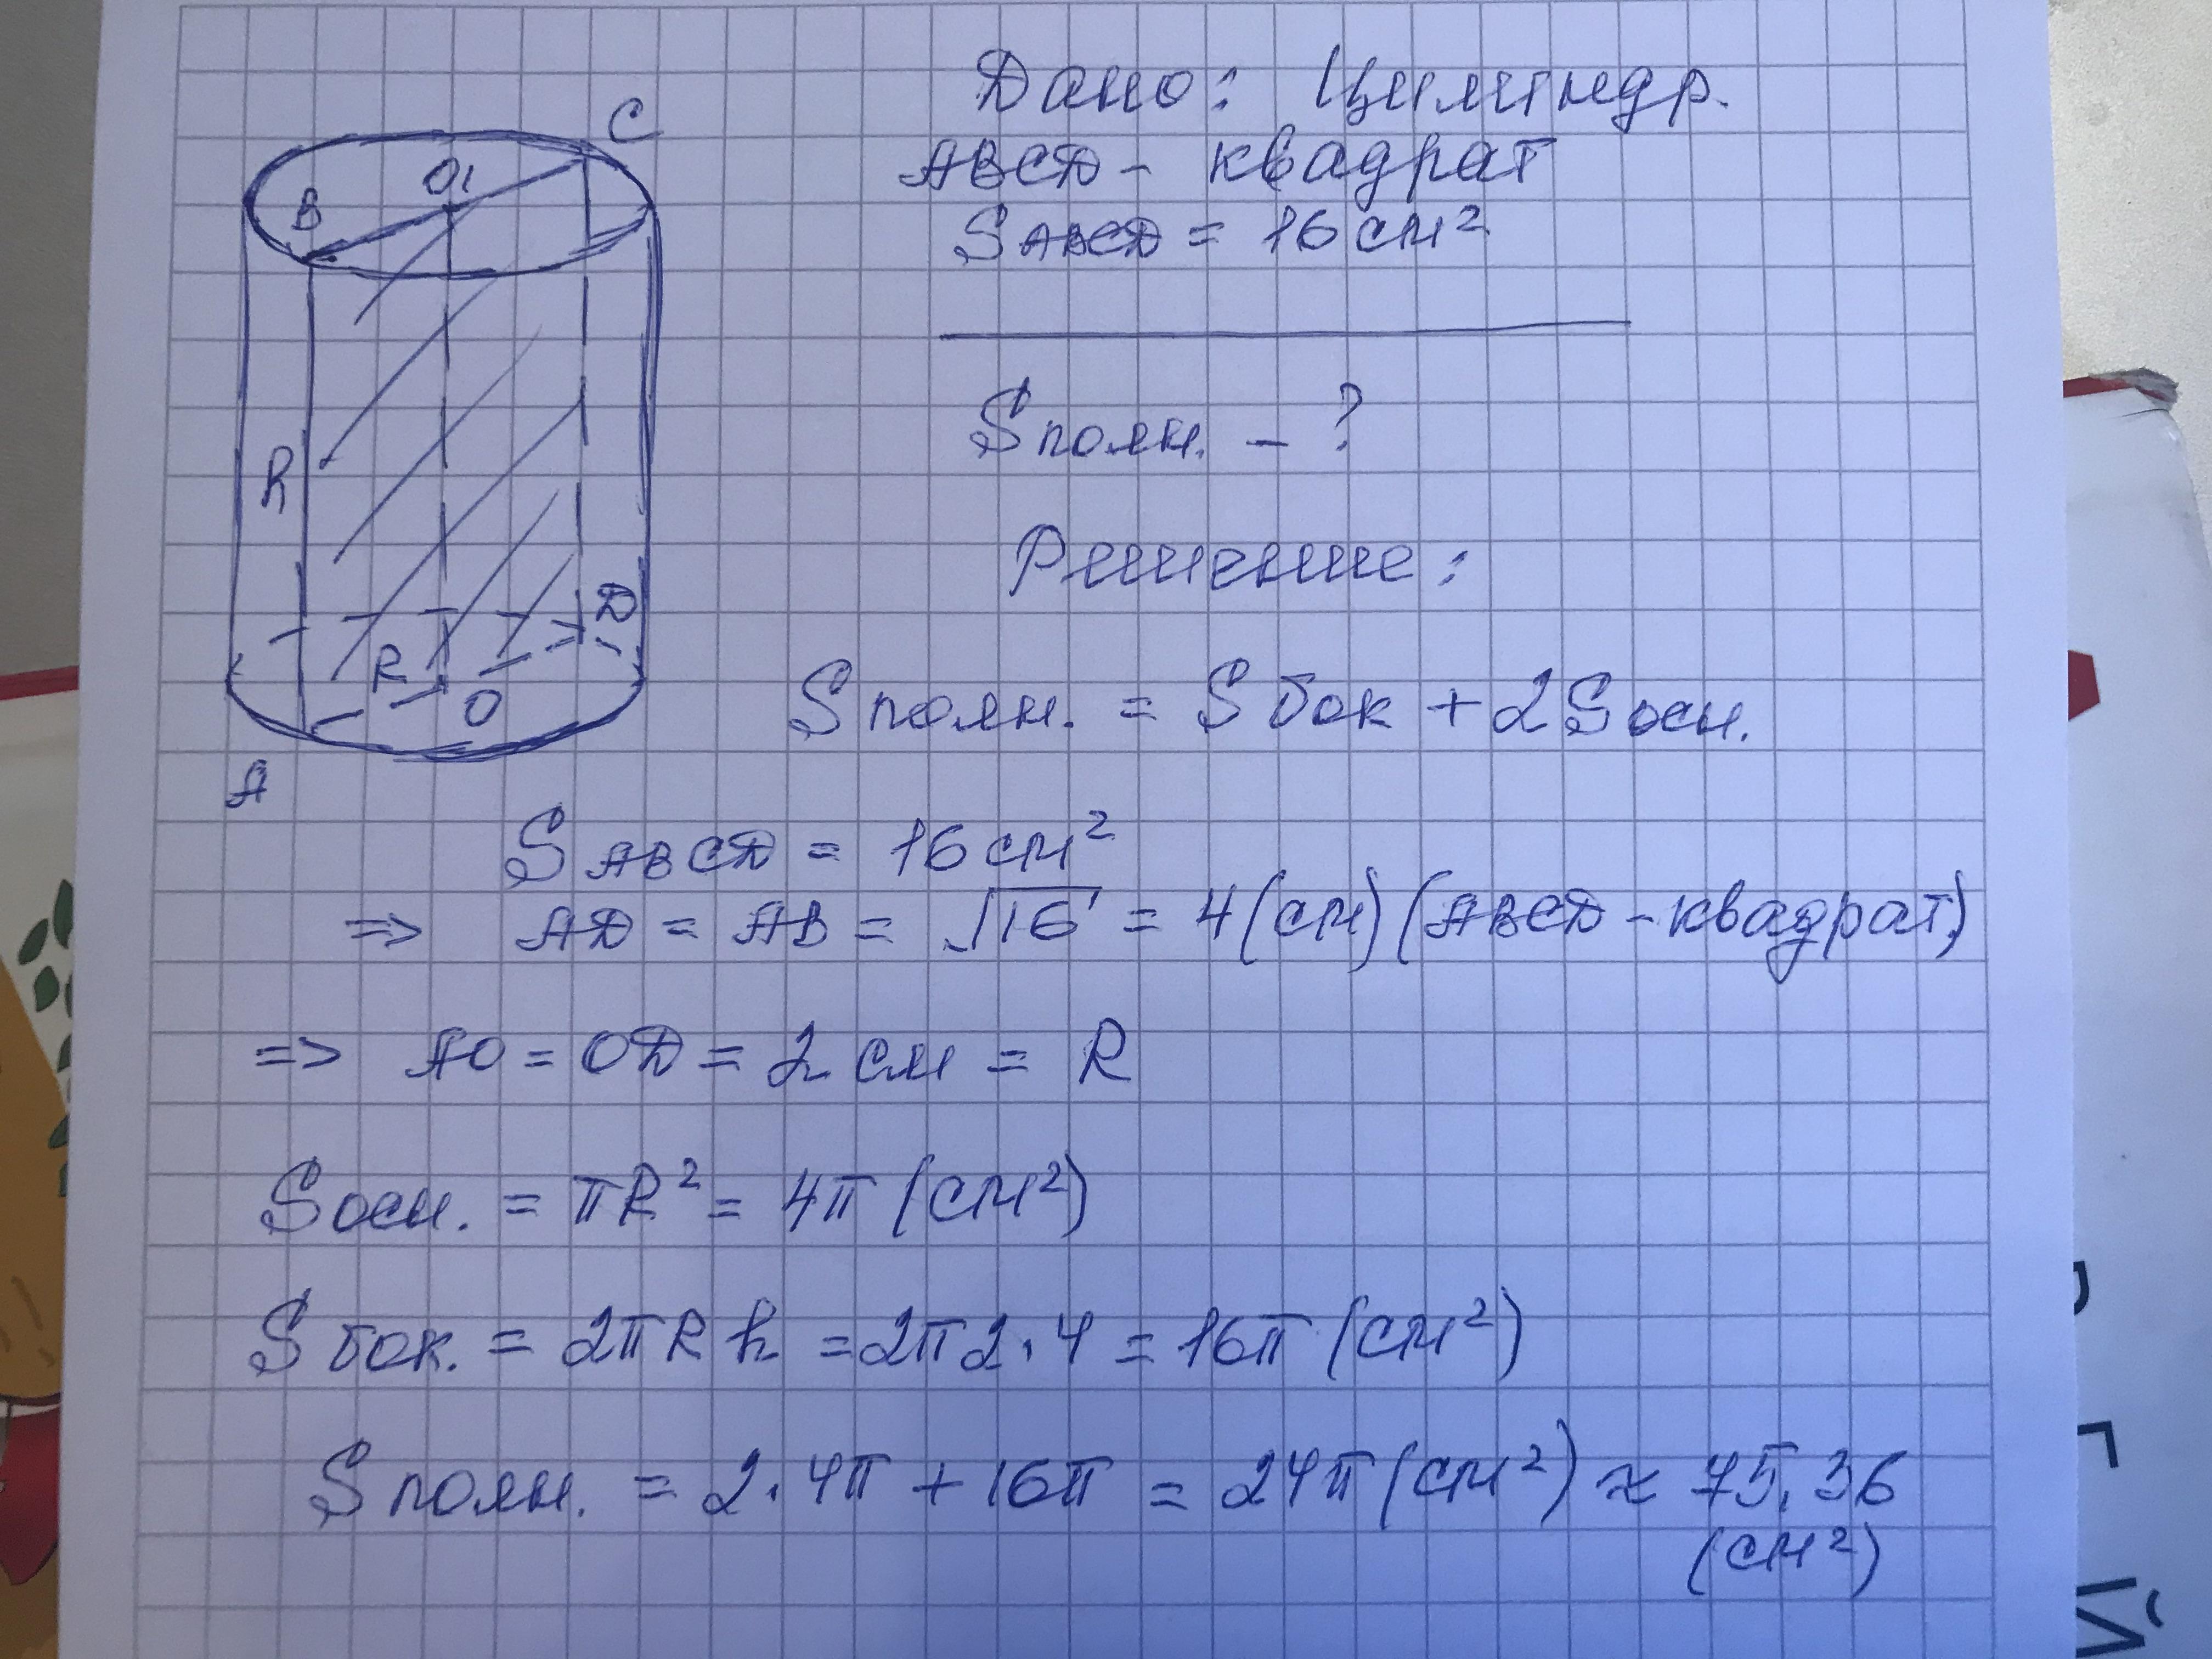 Дано: Цилиндр.
ABCD - квадрат
SABCD = 16 см²
Sполн. - ?
Решение:
Sполн. = Sбок + 2Sосн.
C
O1
B
R
D
R
O
A
SABCD = 16 см²
=> AD = AB = √16 = 4 (см) (ABCD - квадрат)
=> AO = OD = 2 см = R
Sосн. = πR² = 4π (см²)
Sбок. = 2πRh = 2π2·4 = 16π (см²)
Sполн. = 2·4π + 16π = 24π (см²) ≈ 75,36
(см²)